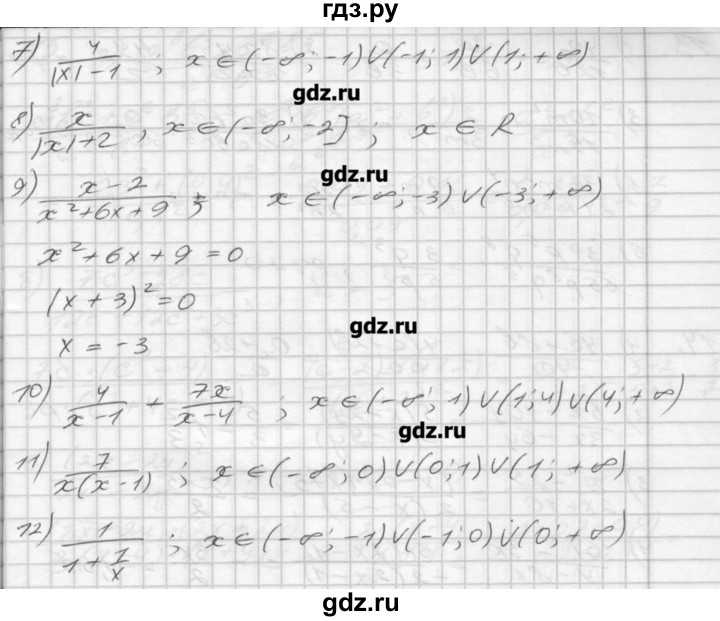 гдз.ру
7) 4/(|x| - 1) ; x ∈ (-∞; -1) ∪ (-1; 1) ∪ (1; +∞)
gdz.ru
8) x/(|x| + 2) , x ∈ (-∞; -2] ; x ∈ R
gdz.ru
9) (x - 2)/(x² + 6x + 9) ; x ∈ (-∞; -3) ∪ (-3; +∞)
x² + 6x + 9 = 0
(x + 3)² = 0
gdz.ru
x = -3
10) 4/(x - 1) + 7x/(x - 4) ; x ∈ (-∞; 1) ∪ (1; 4) ∪ (4; +∞)
gdz.ru
11) 7/(x(x - 1)) ; x ∈ (-∞; 0) ∪ (0; 1) ∪ (1; +∞)
12) 1/(1 + 1/x) ; x ∈ (-∞; -1) ∪ (-1; 0) ∪ (0; +∞)
gdz.ru